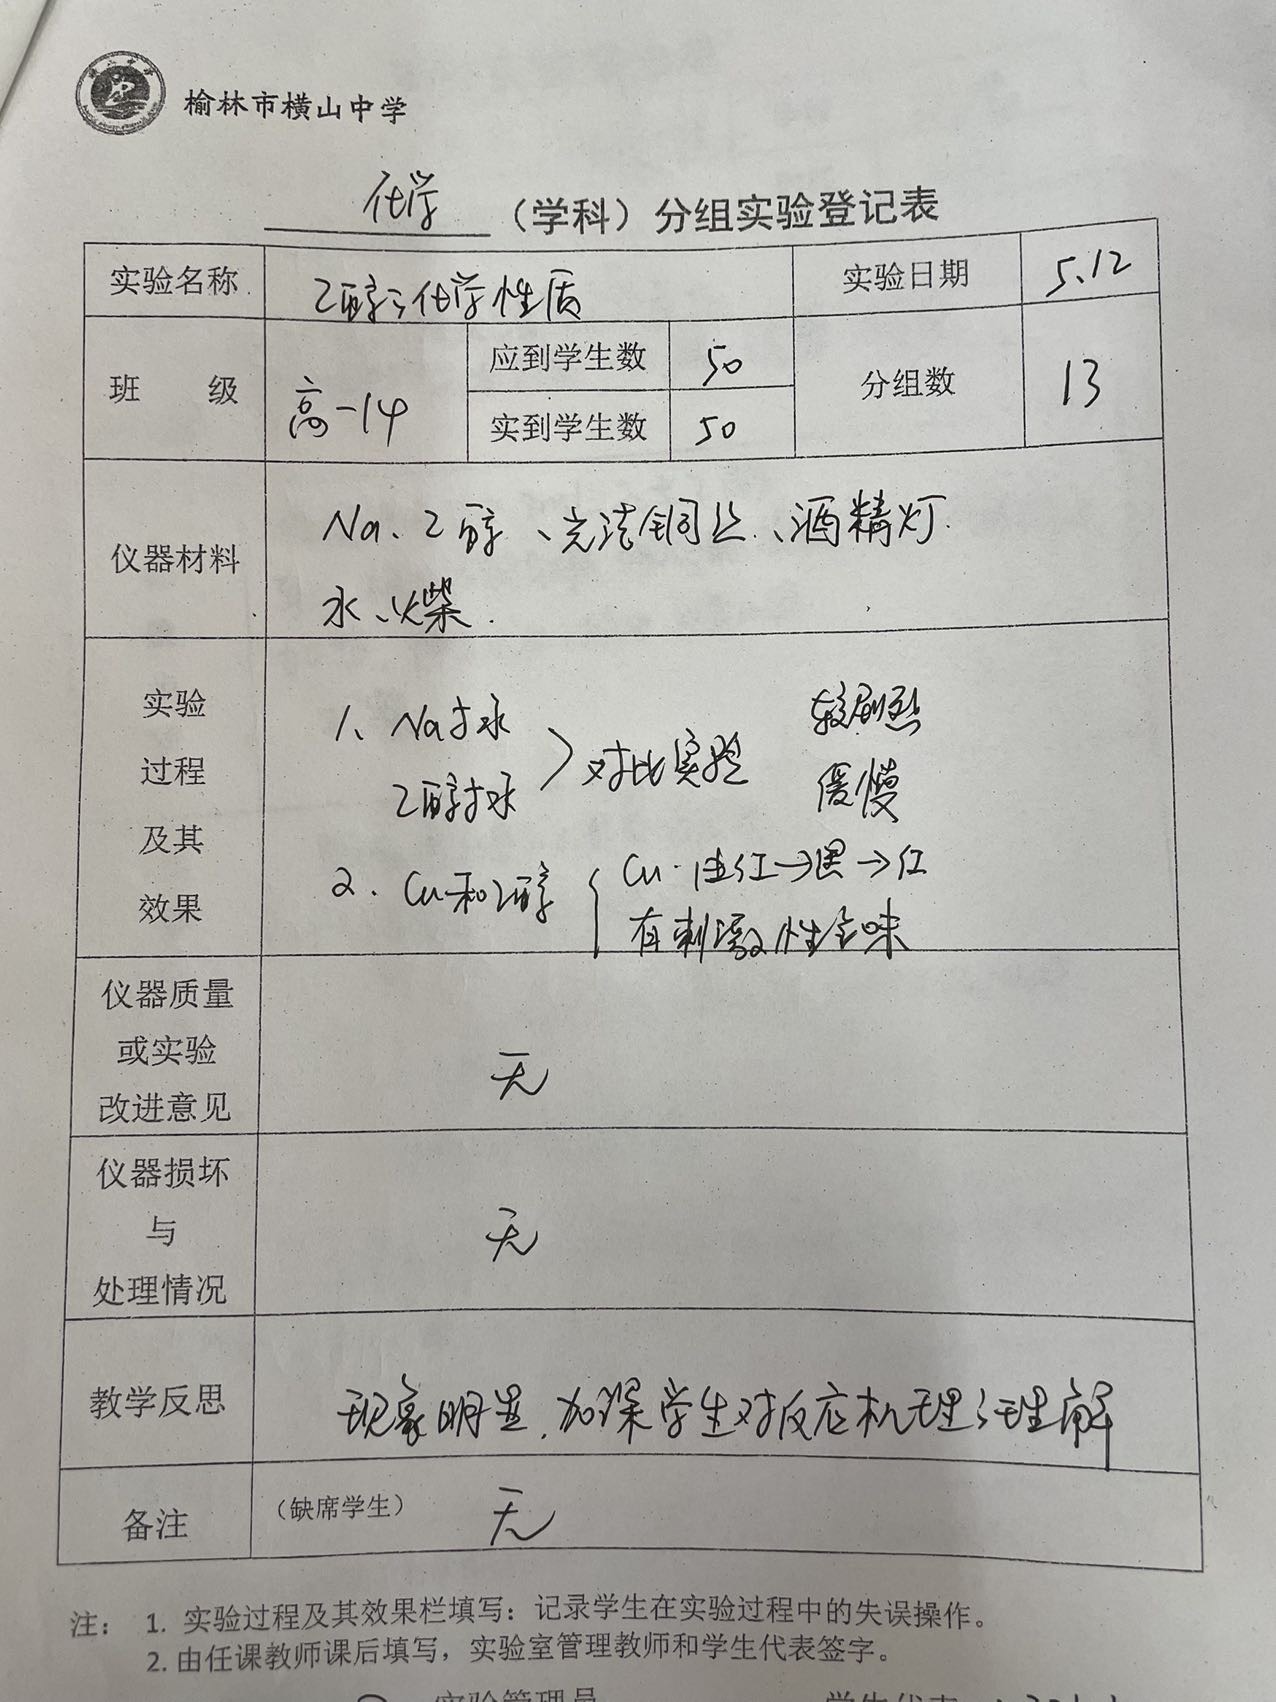 榆林市横山中学
化学 （学科）分组实验登记表
实验名称 乙醇的化学性质 实验日期 5.12
班 级 高一14 应到学生数 50 分组数 13
实到学生数 50
仪器材料 Na、乙醇、光洁铜丝、酒精灯
水、火柴.
实验
过程
及其
效果
1、Na与水 较剧烈
乙醇与水 对比实验 缓慢
2. Cu和乙醇 Cu 红→黑→红
有刺激性气味
仪器质量
或实验
改进意见
无
仪器损坏
与
处理情况
无
教学反思 现象明显.加深学生对反应机理的理解
备注 （缺席学生） 无
注： 1. 实验过程及其效果栏填写：记录学生在实验过程中的失误操作。
2. 由任课教师课后填写，实验室管理教师和学生代表签字。
实验管理员 学生代表